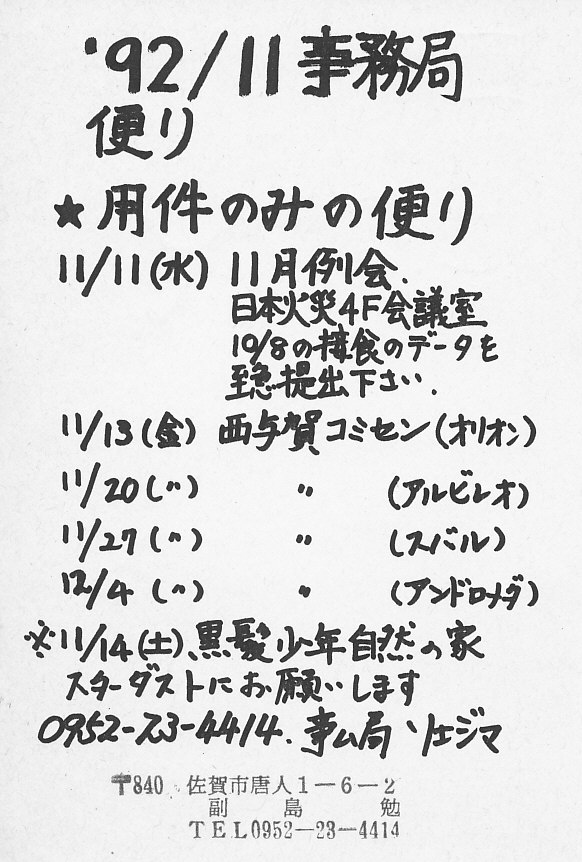 '92/11 事務局
便り
★用件のみの便り
11/11(水) 11月例会.
日本火災4F会議室
10/8の接食のデータを
至急提出下さい.
11/13(金) 西与賀コミセン(オリオン)
11/20(〃) 〃 (アルビレオ)
11/27(〃) 〃 (スバル)
12/4(〃) 〃 (アンドロメダ)
※11/14(土)、黒髪少年自然の家
スターダストにお願いします
0952-23-4414. 事ム局 ソエジマ
〒840 佐賀市唐人1-6-2
副島 勉
TEL0952-23-4414